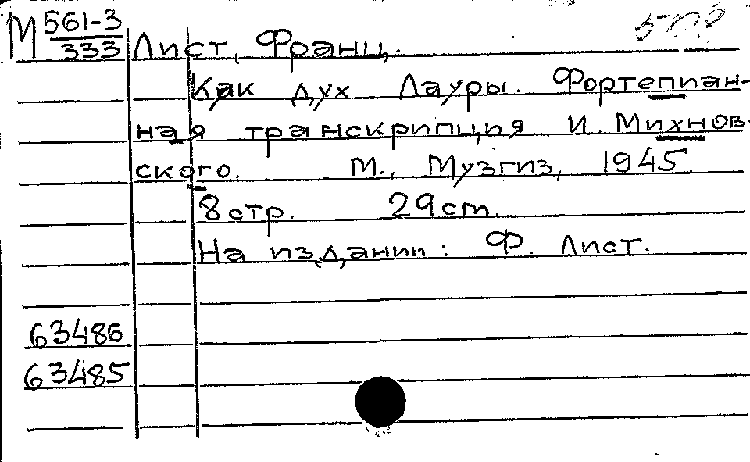 М 561-3
333
Лист, Франц.
Как дух Лауры. Фортепиан-
ная транскрипция И. Михнов-
ского. М., Музгиз, 1945
8 стр. 29 cm.
На издании: Ф. Лист.
63486
63485